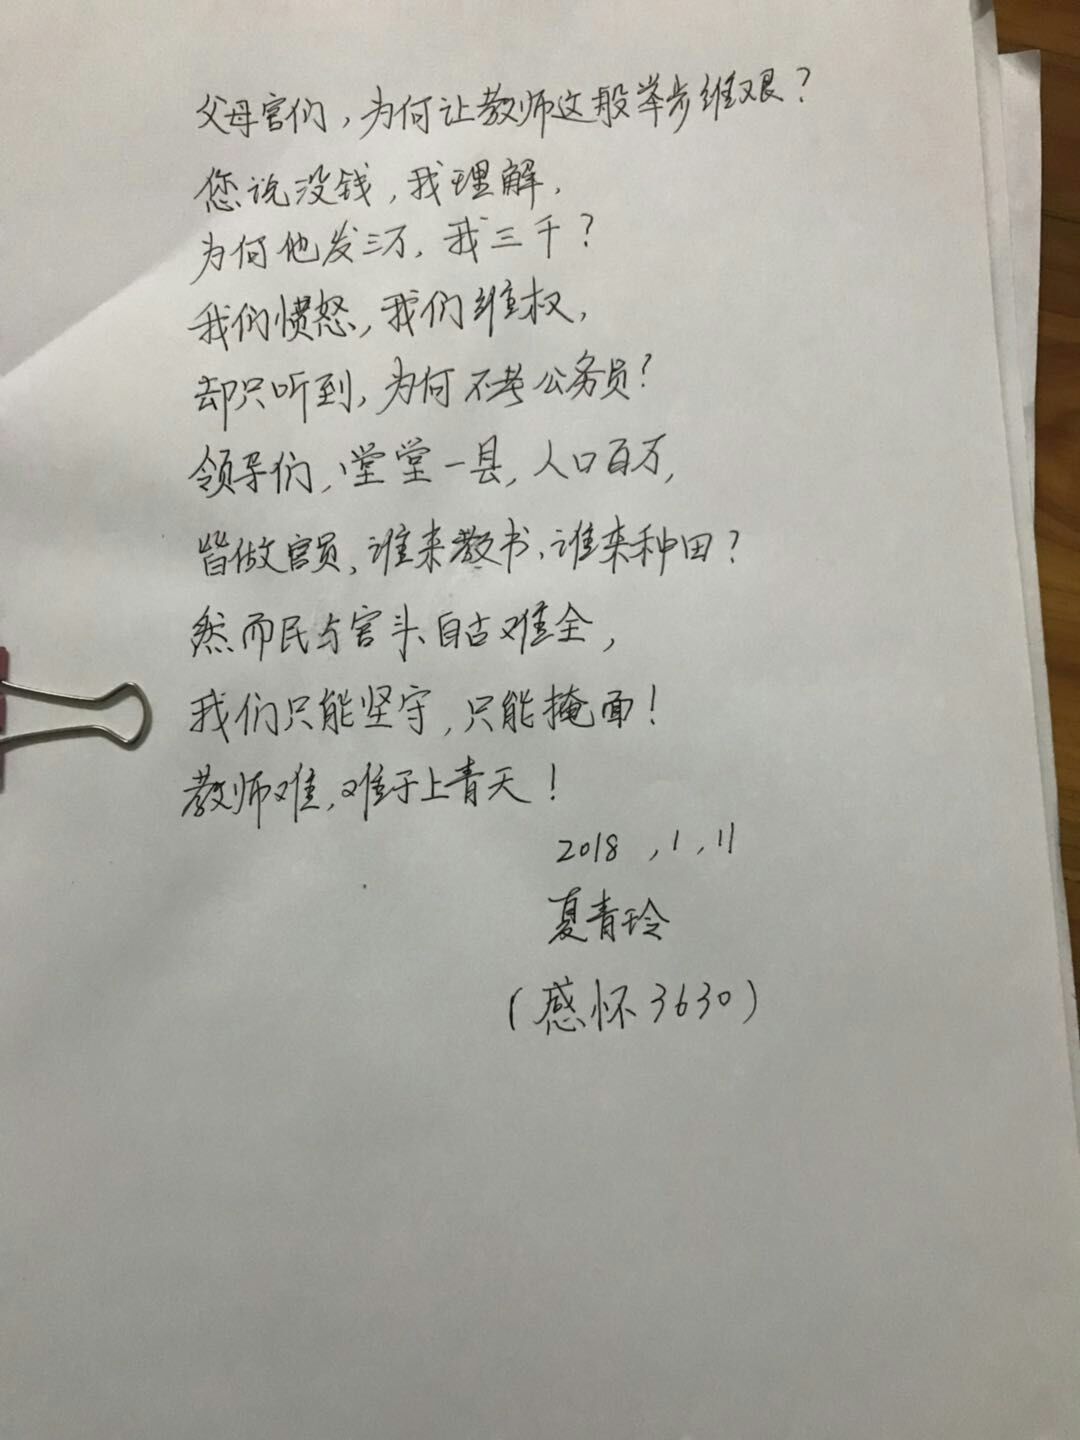 父母官们，为何让教师这般举步维艰？
您说没钱，我理解，
为何他发三万，我三千？
我们愤怒，我们维权，
却只听到，为何不考公务员？
领导们，堂堂一县，人口百万，
皆做官员，谁来教书、谁来种田？
然而民与官斗自古难全，
我们只能坚守，只能掩面！
教师难，难于上青天！
2018，1，11
夏青玲
（感怀3630）